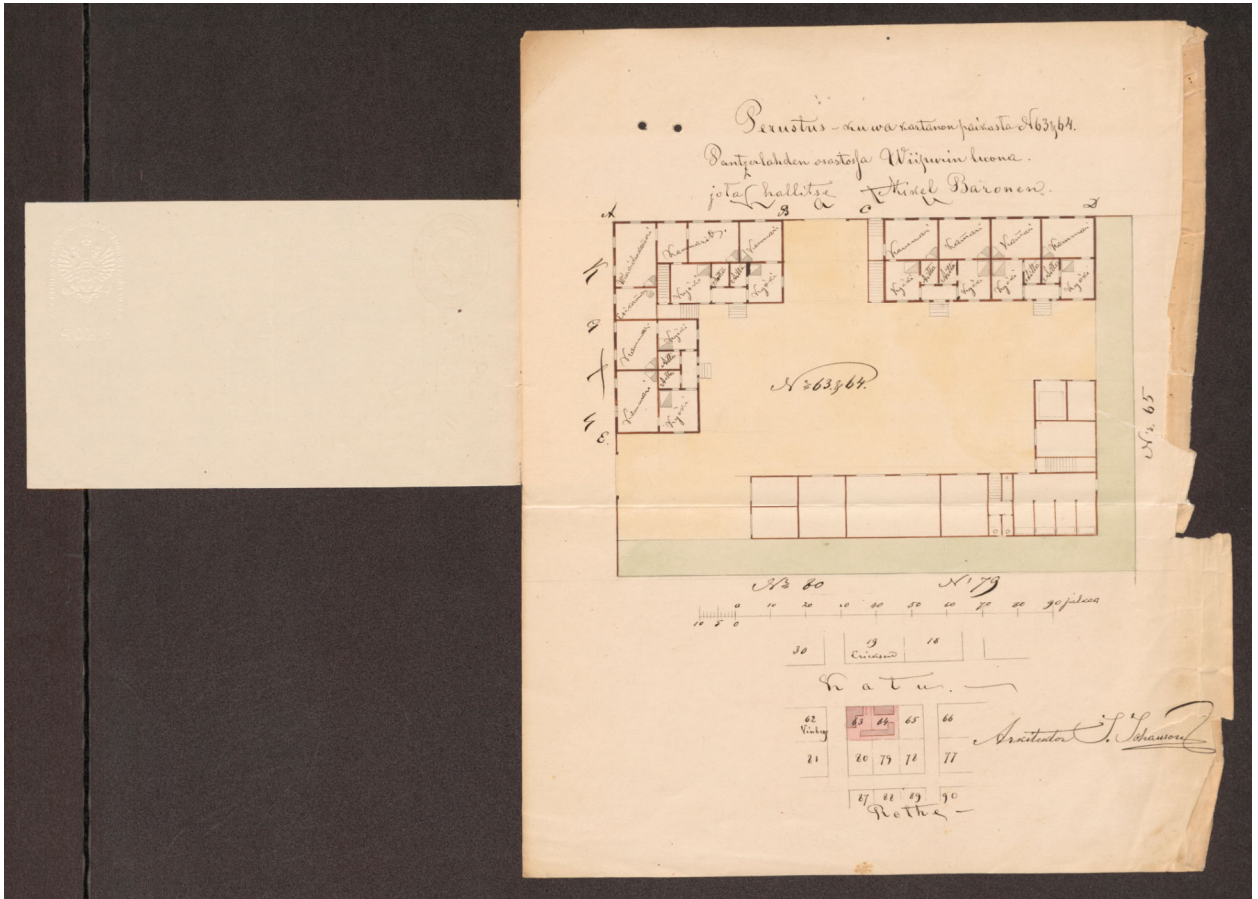 Perustus-kuwa kartanon paikasta N63 & 64.
Pantzerlahden osastossa Wiipurin luona.
jota hallitse Mikel Baronen.
A B a C D
Kammari Kammari
Kammari Kammari Kammari Kammari
Kyöki Kyöki
Kyöki Kyöki Kyöki Kyöki
Kammari Kyöki
Kammari Kyöki
E
No 63 & 64.
No 65
No 80 No 79
0 10 20 30 40 50 60 70 80 90 jalkaa
10 5 0
30 19 18
K a t u.
62 63 64 65 66
81 80 79 78 77
87 88 89 90
Rothe
Arkitektor J. Johanson